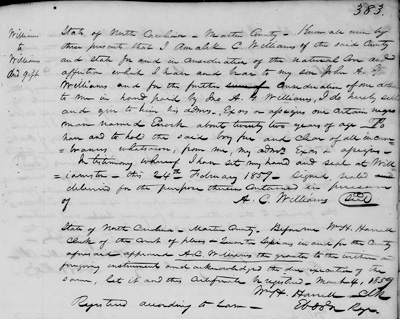 383
Williams
to
Williams
Deed gift
State of North Carolina - Martin County - Know all men by
these presents that I Amalek C. Williams of the said County
and State for and in consideration of the natural love and
affection which I have and bear to my son John A. G.
Williams and for the further consideration of one dollar
to me in hand paid by Jno A. G. Williams, I do hereby sell
and give to him his Admrs, Exors or assigns one certain negro
man named about twenty two years of age To
have and to hold the said boy free and clear of all incum-
brances whatsoever, from me, my Admrs Exors or assigns
In testimony whereof I have set my hand and seal at Will-
iamston - this 24th February 1857 - signed sealed and
delivered for the purpose therein contained in presence
of A. C. Williams (Seal)
State of North Carolina - Martin County. Before me Wm H. Harrell
Clerk of the Court of pleas & Quarter Sessions in and for the County
aforesaid appeared A. C. Williams the grantor to the within
foregoing instrument and acknowledged the due execution of the
same, let it and this Certificate be registered. March 4, 1857
Wm H. Harrell Clk
Registered according to law - Regr.